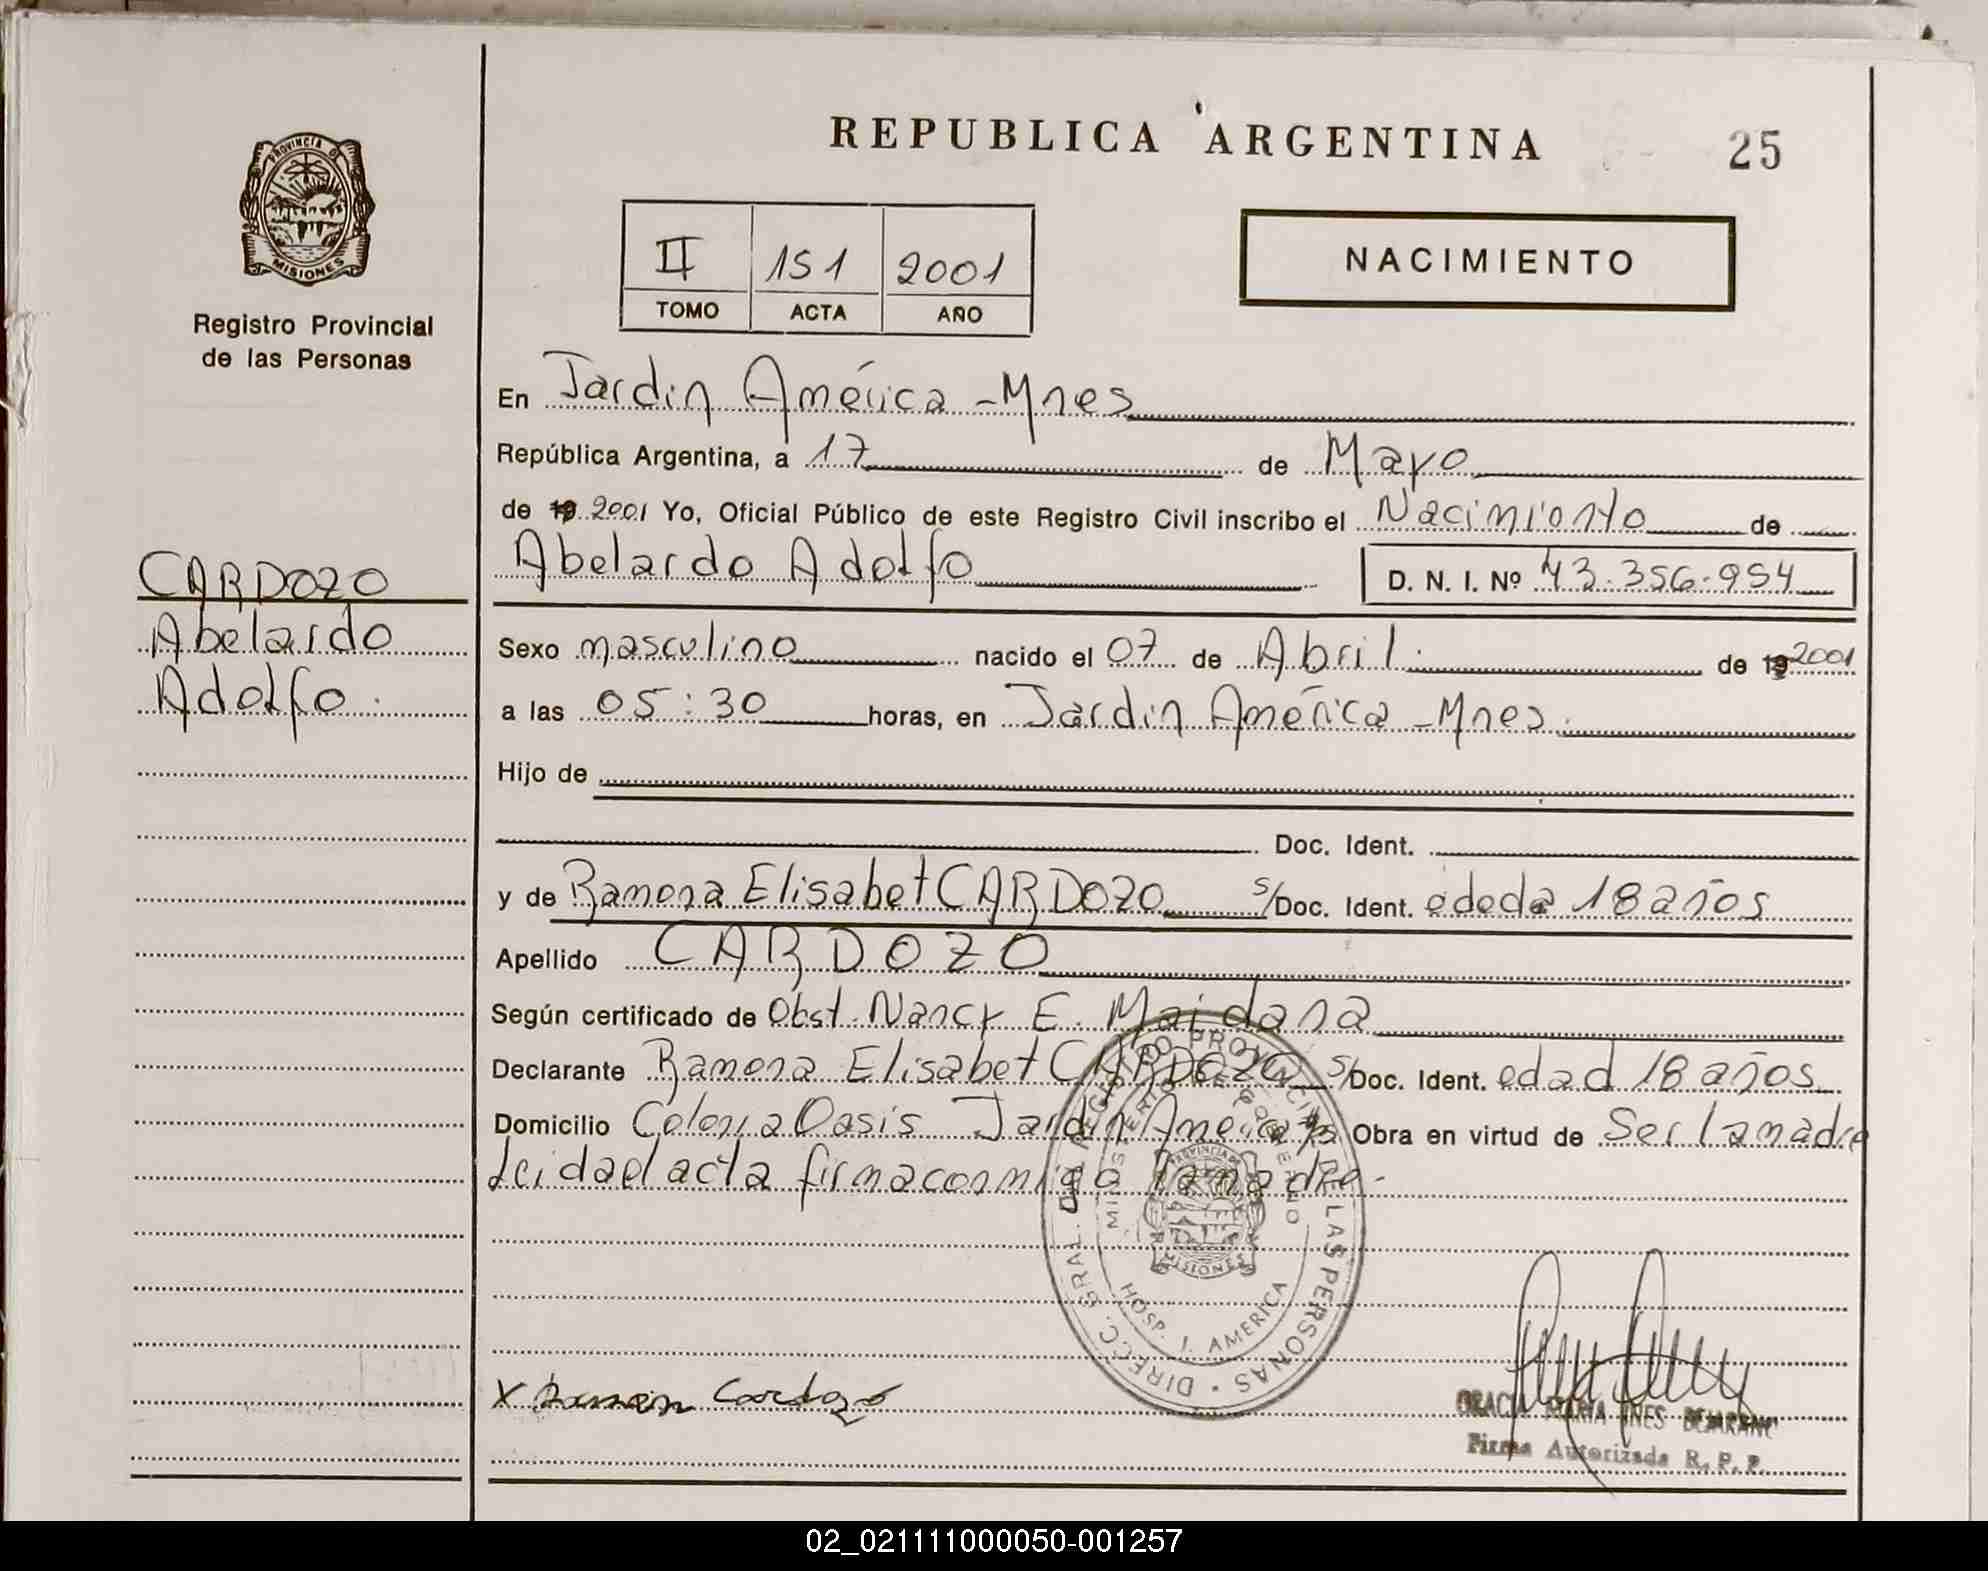 REPUBLICA ARGENTINA
25
PROVINCIA DE
MISIONES
Registro Provincial
de las Personas
II 151 2001
TOMO ACTA AÑO
NACIMIENTO
En Jardin América - Mnes
República Argentina, a 17 de Mayo
de 19 2001 Yo, Oficial Público de este Registro Civil inscribo el Nacimiento de
Abelardo Adolfo D. N. I. Nº 43.356.954
CARDOZO
Abelardo
Adolfo.
Sexo masculino nacido el 07 de Abril. de 19 2001
a las 05:30 horas, en Jardin América - Mnes.
Hijo de
Doc. Ident.
y de Ramona Elisabet CARDOZO s/Doc. Ident. edad 18 años
Apellido CARDOZO
Según certificado de Obst. Nancy E. Maidana
Declarante Ramona Elisabet CARDOZO s/Doc. Ident. edad 18 años
Domicilio Colonia Oasis Jardin America Obra en virtud de Ser la madre
Leida el acta firma conmigo la madre.
DIRECC. GRAL. DE REGISTRO PROVINCIAL DE LAS PERSONAS
MINISTERIO DE GOBIERNO
PROVINCIA DE
MISIONES
HOSP. J. AMERICA
X Ramona Cardozo
MARIA INES BEJARANO
Firma Autorizada R. P. P.
02_021111000050-001257